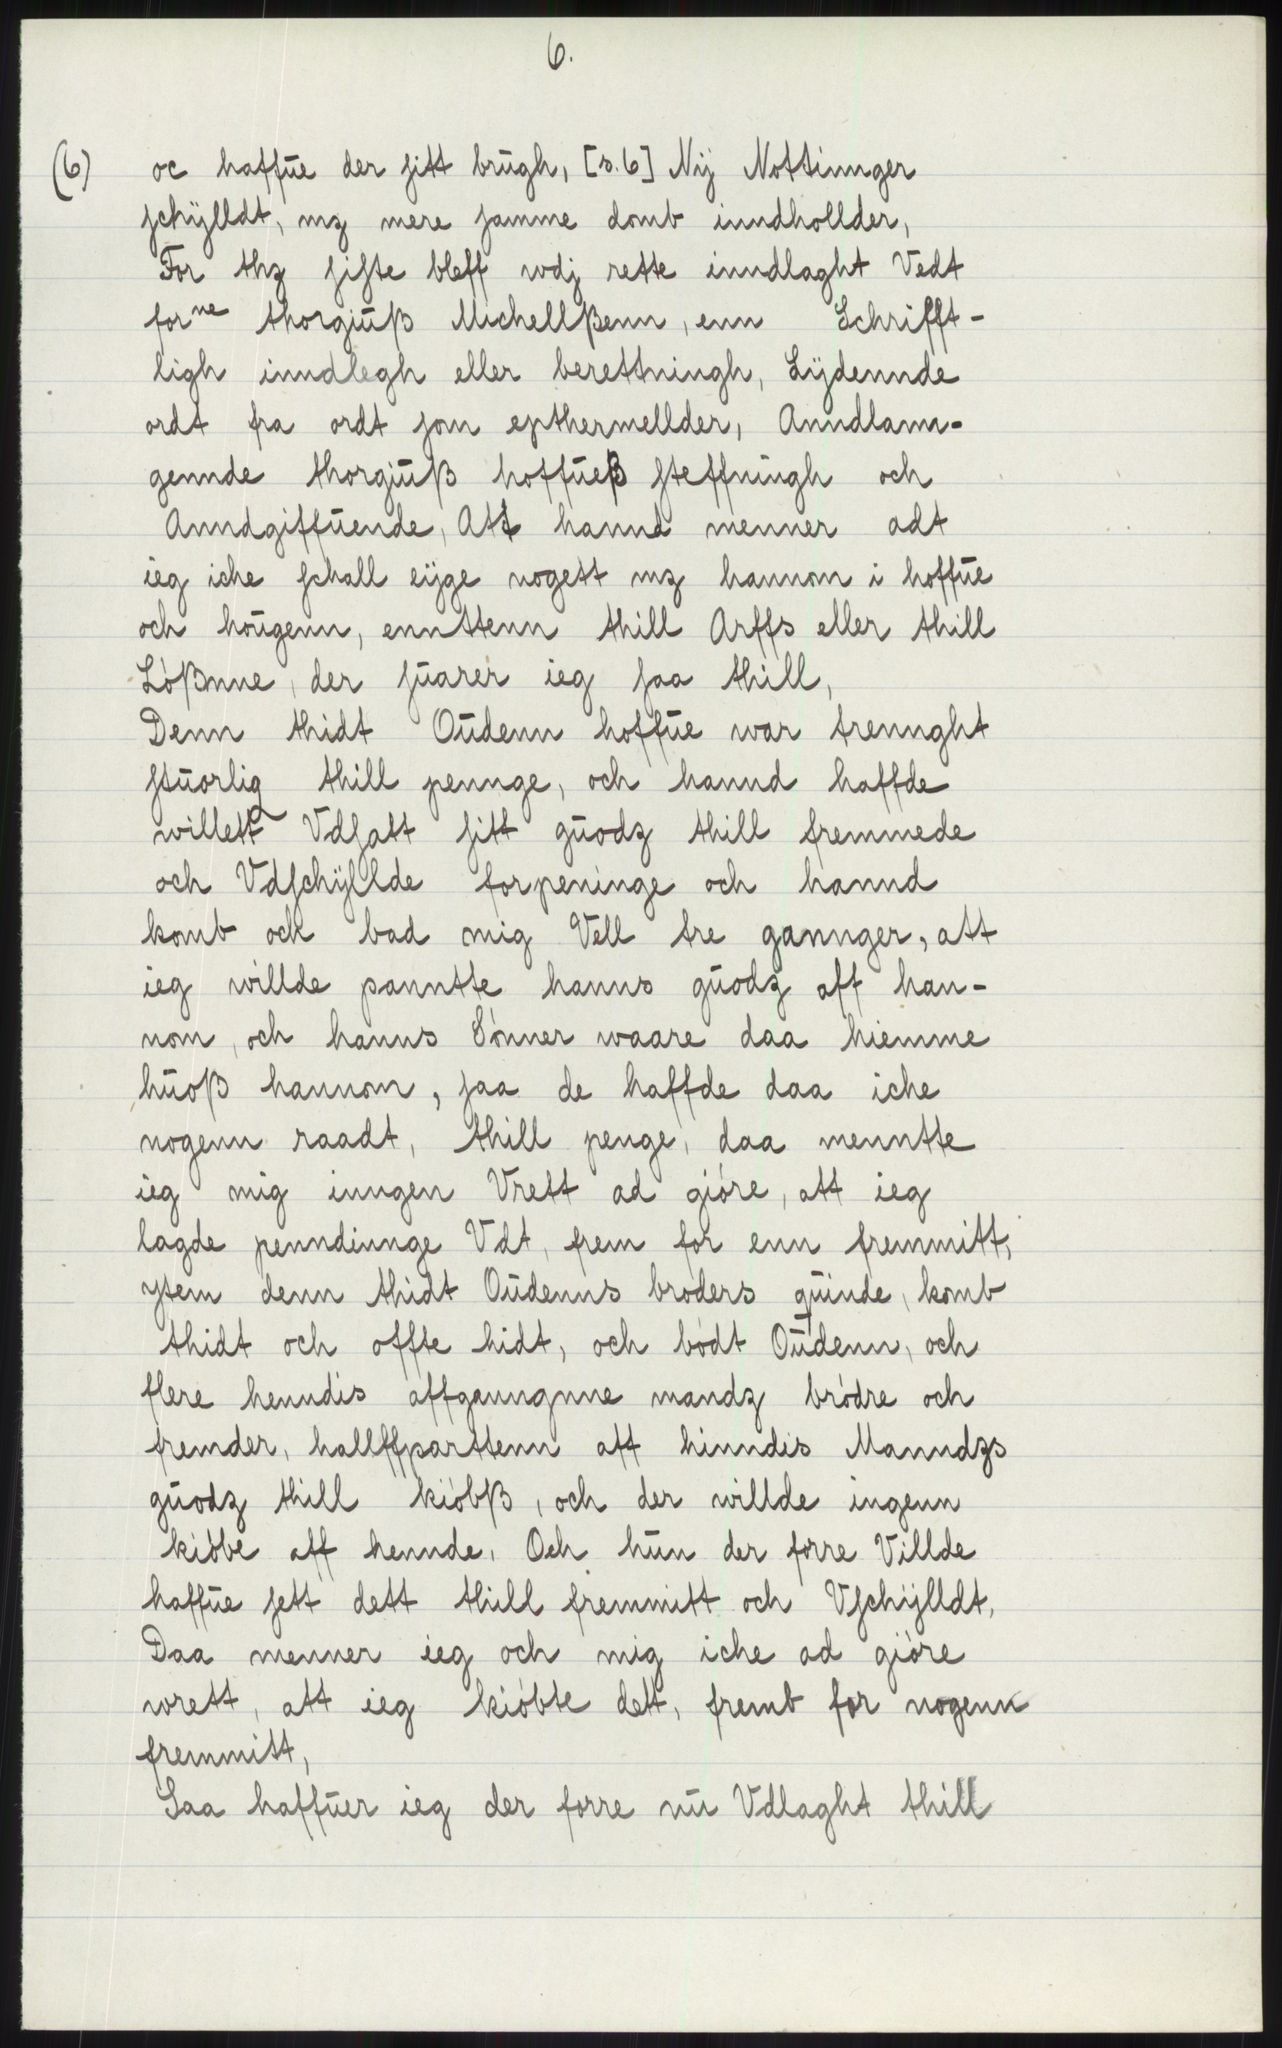 6.
(6) oc haffūe der sitt brūgh, [s.6] Nij Nottinnger
schÿlldt, mz mere samme domb inndhollder,
For thz siste bleff wdj rette inndlaght Vedt
forne thorgiūß Michellßenn, enn Schrifft-
ligh inndlegh eller berettningh, Lÿdennde
ordt fra ordt som epthermellder, Anndlann-
gennde thorgiūß hoffūeß steffningh och
Anndgiffūende, Att hannd menner adt
ieg iche schall eÿge nogett mz hannom i hoffūe
och hoūgenn, ennttenn thill Arffs eller thill
Lößnne, der sūarer ieg saa thill,
Denn thidt Oūdenn hoffūe war trennght
stūorlig thill pennge, och hannd haffde
willett Vdsatt sitt gūodz thill fremmede
och Vdschÿllde forpeninge och hannd
komb och bad mig Vell tre gannger, att
ieg willde panntte hanns gūodz aff han-
nom, och hanns Sónner waare daa hiemme
hūoß hannom, saa de haffde daa iche
nogenn raadt, thill penge, daa menntte
ieg mig inngen Vrett ad gióre, att ieg
lagde penndinnge Vdt, frem for enn fremmitt,
ytem denn thidt Oūdenns broders qūinde, komb
thidt och offte hidt, och bódt Oūdenn, och
flere henndis affganngnne mandz bródre och
fremder, hallffparttenn aff hinndis Manndzs
gūodz thill kióbß, och der willde ingenn
kióbe aff hennde, Och hūn der forre Villde
haffūe sett dett thill fremmitt och Vschÿlldt,
Daa menner ieg och mig iche ad gióre
wrett, att ieg kióbte dett, fremb for nogenn
fremmitt,
Saa haffūer ieg der forre nū Vdlaght thill